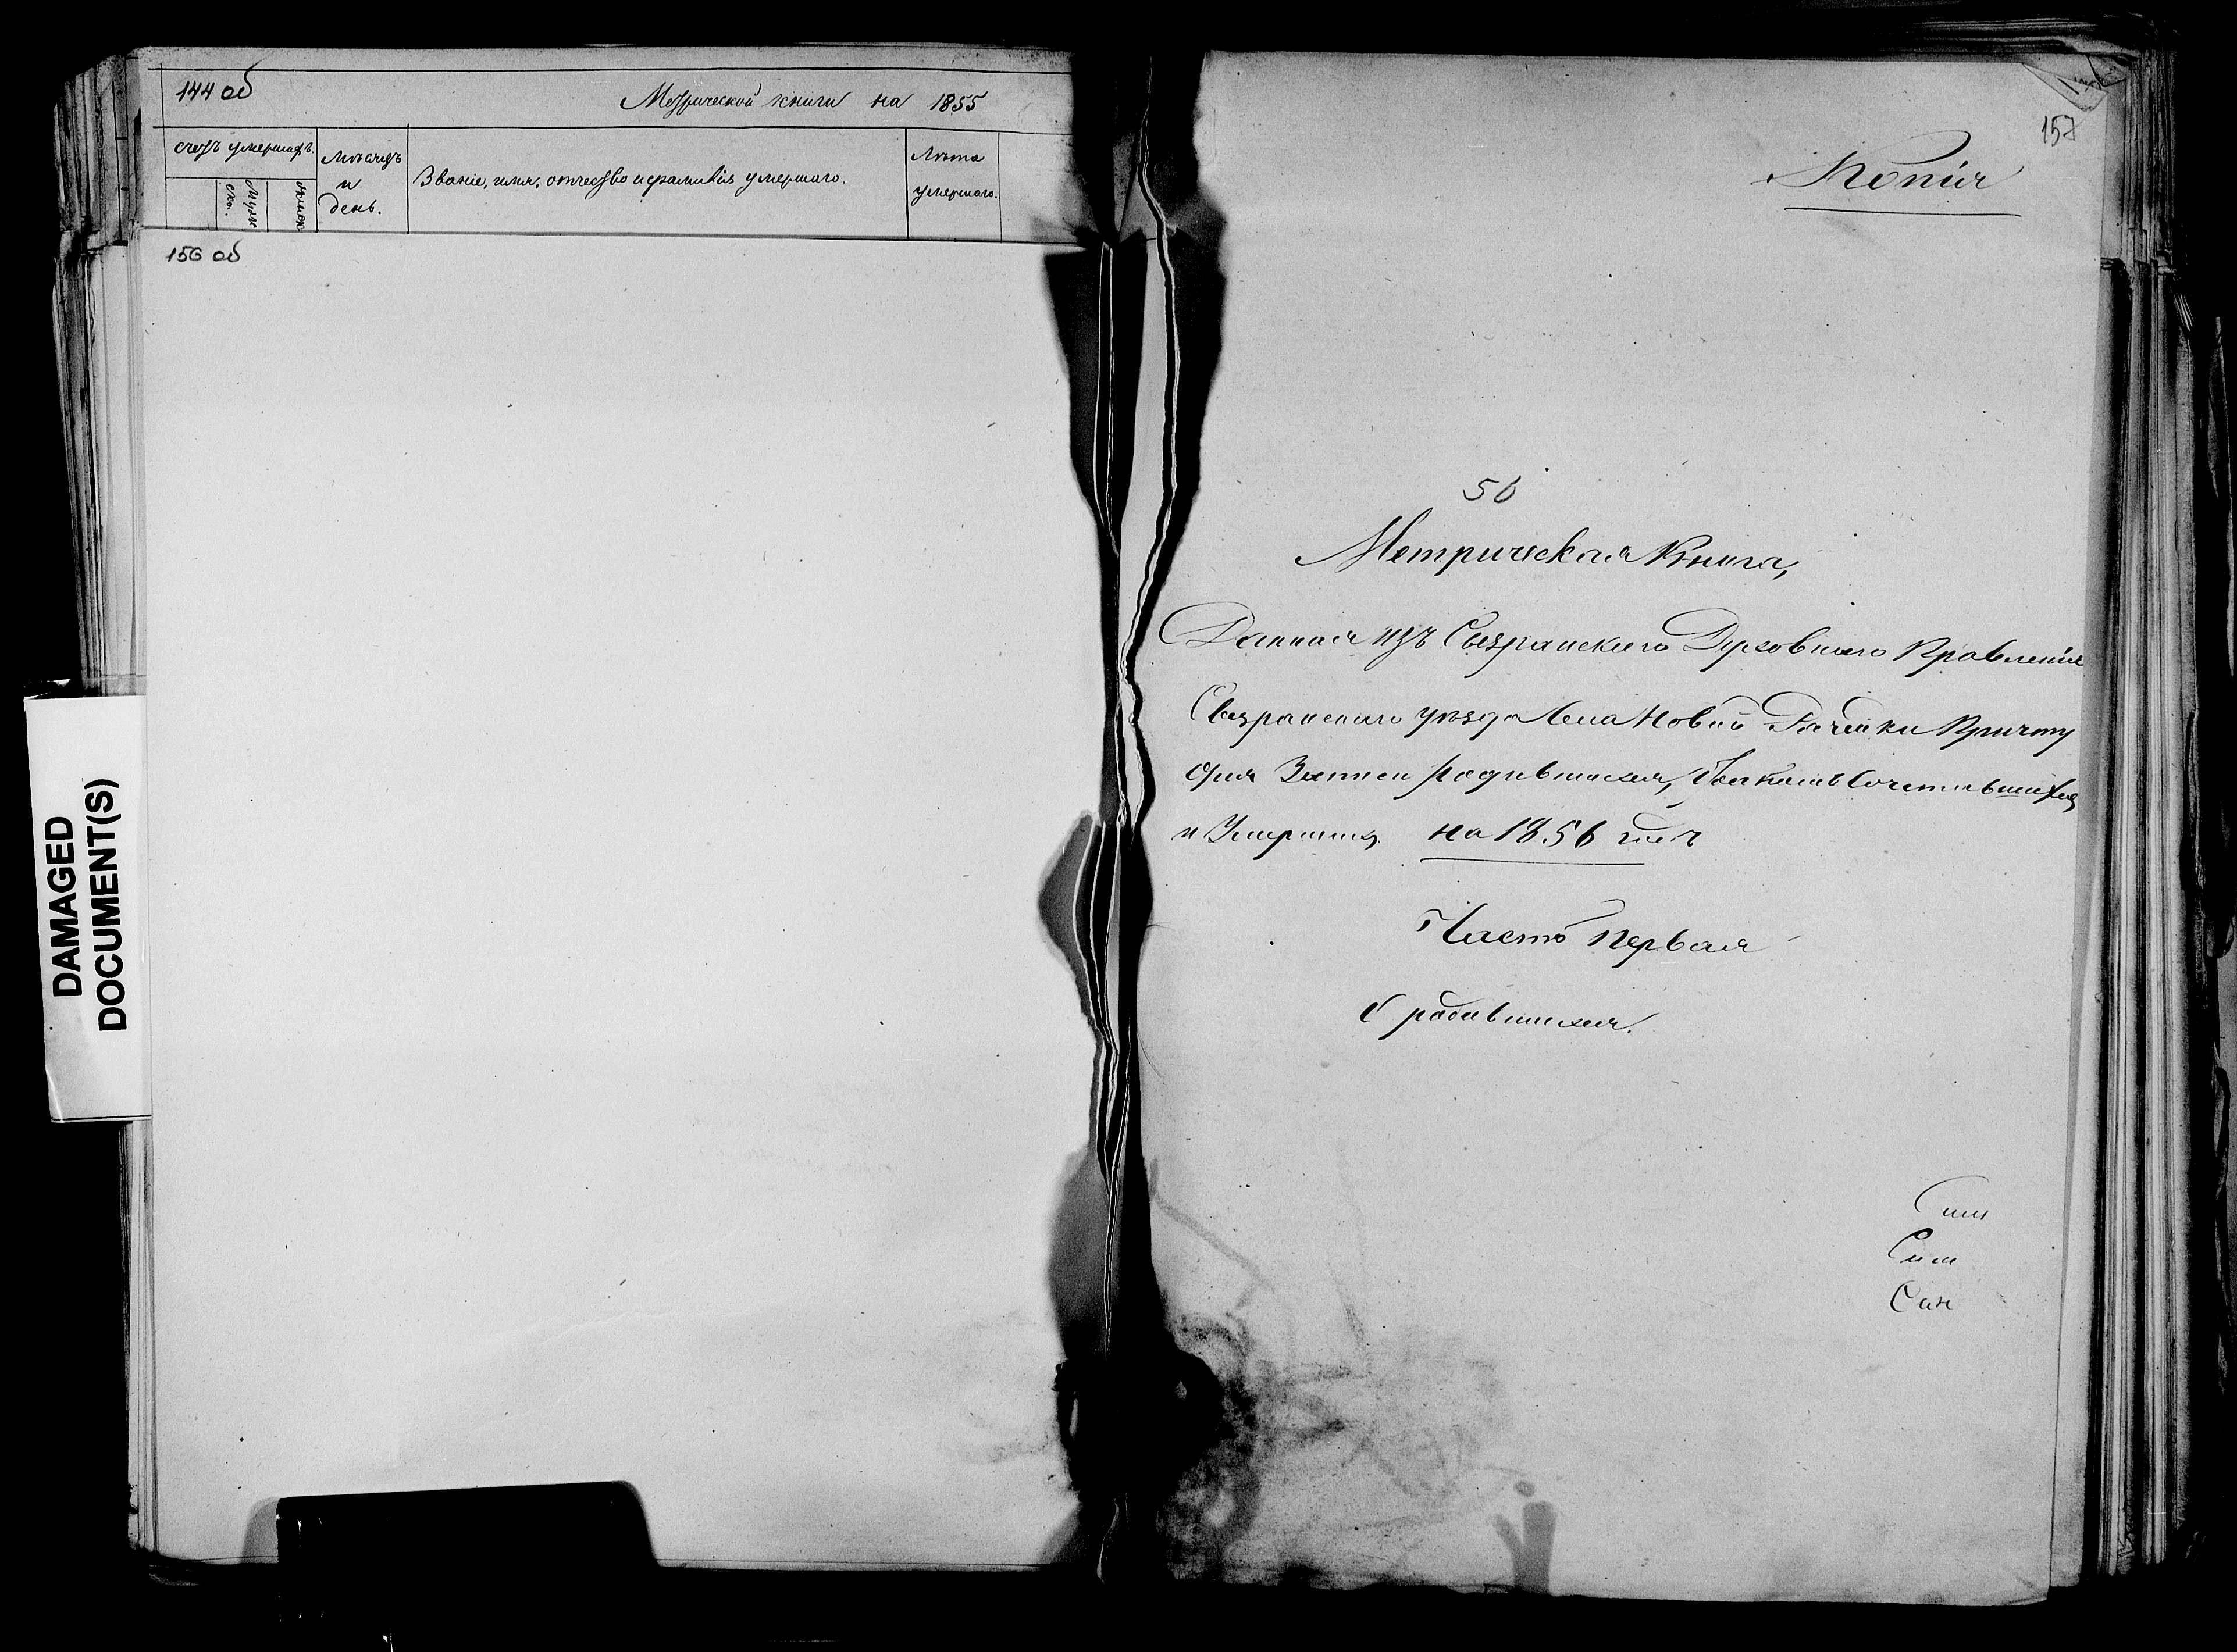 144 об
Метрической книги на 1855
счетъ умершихъ.
Мужеска.
женска
Мѣсяцъ
и
день.
Званіе, имя, отчество и фамилія умершаго.
Лѣта
умершаго.
156 об
DAMAGED
DOCUMENT(S)
157
Копія
56
Метрическая Книга,
Данная изъ Сызранскаго Духовнаго Правленія
Сызранскаго уѣзда Села Новой Рачейки Причту
для Записи родившихся, бракомъ Сочетавшихся
и Умершихъ на 1856 годъ
Часть первая
О родившихся.
Сим
Сим
Сан